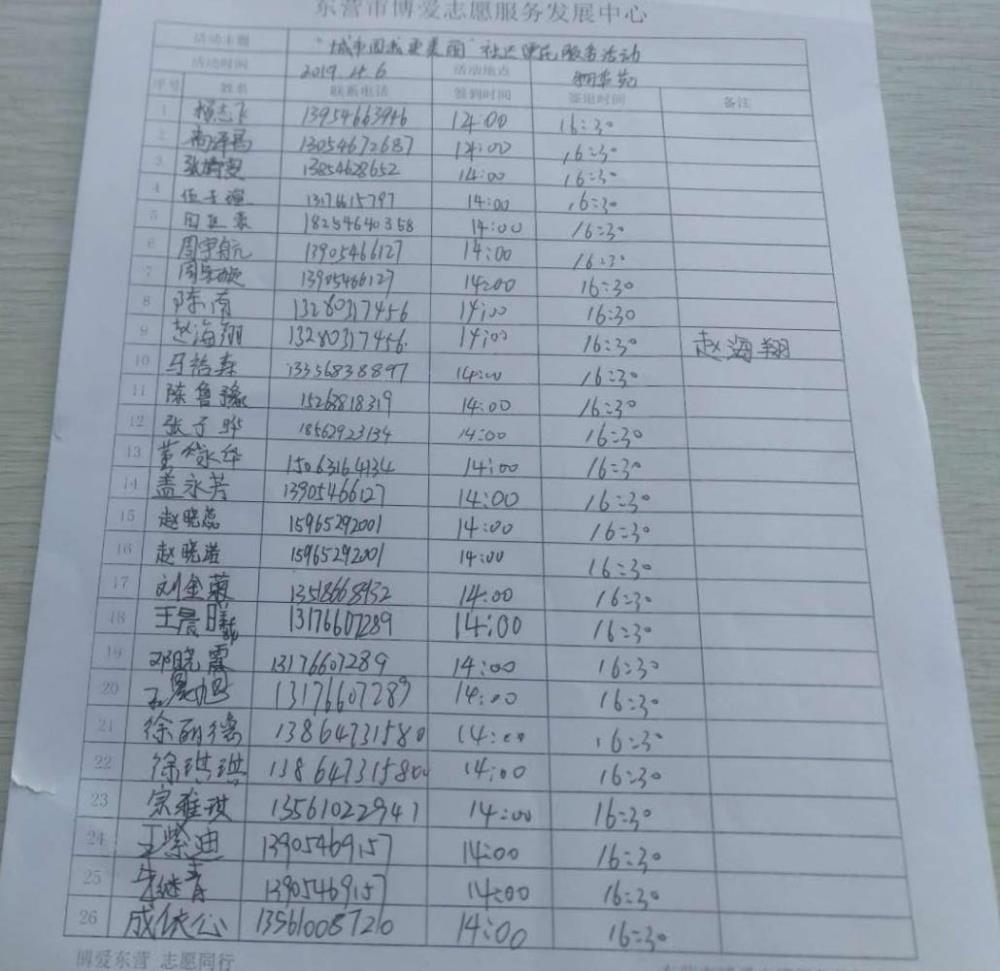 东营市博爱志愿服务发展中心
活动主题 "城市因我更美丽"社区便民服务活动
活动时间 2019.4.6 活动地点
序号 姓名 联系电话 签到时间 签退时间 备注
1 杨志飞 13954663946 14:00 16:30
2 13054672687 14:00 16:30
3 13854628652 14:00 16:30
4 13176615797 14:00 16:30
5 18254640358 14:00 16:30
6 周宇航 13905466127 14:00 16:30
7 13905466127 14:00 16:30
8 陈南 13280317456 14:00 16:30
9 赵海翔 13280317456 14:00 16:30 赵海翔
10 马裕森 13356838897 14:00 16:30
11 陈鲁豫 15263818319 14:00 16:30
12 张子晔 18562923134 14:00 16:30
13 15063164134 14:00 16:30
14 盖永芳 13905466127 14:00 16:30
15 赵晓蕊 15965292001 14:00 16:30
16 赵晓溢 15965292001 14:00 16:30
17 刘金菊 13518668932 14:00 16:30
18 王晨曦 13176607289 14:00 16:30
19 邓晓霞 13176607289 14:00 16:30
20 王晨旭 13176607289 14:00 16:30
21 徐丽德 13864731580 14:00 16:30
22 徐琪琪 13864731580 14:00 16:30
23 宗雅琪 13561022941 14:00 16:30
24 王紫迪 13905469157 14:00 16:30
25 13905469157 14:00 16:30
26 成依心 135610087210 14:00 16:30
博爱东营 志愿同行